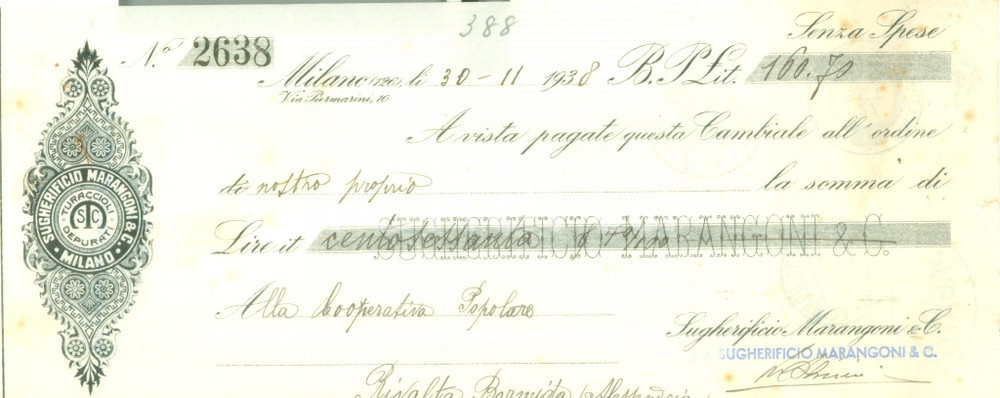 388
Senza Spese
N.º 2638
Milano (126), li 30 - 11 1938 B. P. £it. 160.70
Via Piermarini, 10
A vista pagate questa Cambiale all'ordine
di nostro proprio la somma di
Lire it centosessanta & 70/100
SUGHERIFICIO MARANGONI & C.
Alla Cooperativa Popolare
Sugherificio Marangoni & C.
SUGHERIFICIO MARANGONI & C.
Rivalta Bormida (Alessandria)
SUGHERIFICIO MARANGONI & C.
MILANO
TURACCIOLI
DEPURATI